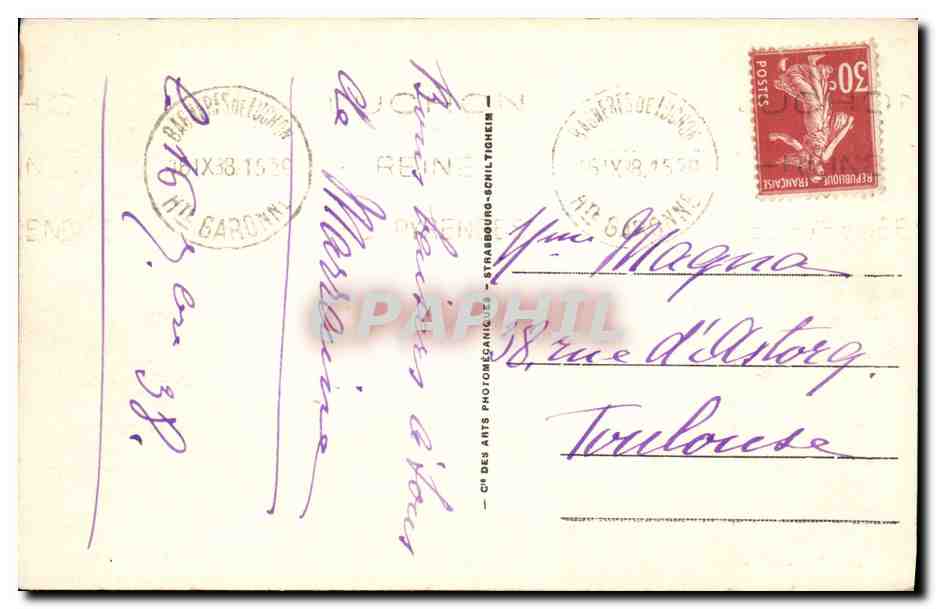 Bons baisers à tous
de Marraine
Le 16 7bre 38.
BAGNERES DE LUCHON
16 IX 38. 15 30
HTE GARONNE
LUCHON
REINE
PYRENEES
BAGNERES DE LUCHON
16 IX 38. 15 30
HTE GARONNE
30c
POSTES
REPUBLIQUE FRANÇAISE
Mme Magna
38, rue d'Astorg.
Toulouse
— Cie DES ARTS PHOTOMÉCANIQUES - STRASBOURG-SCHILTIGHEIM —
CPAPHIL